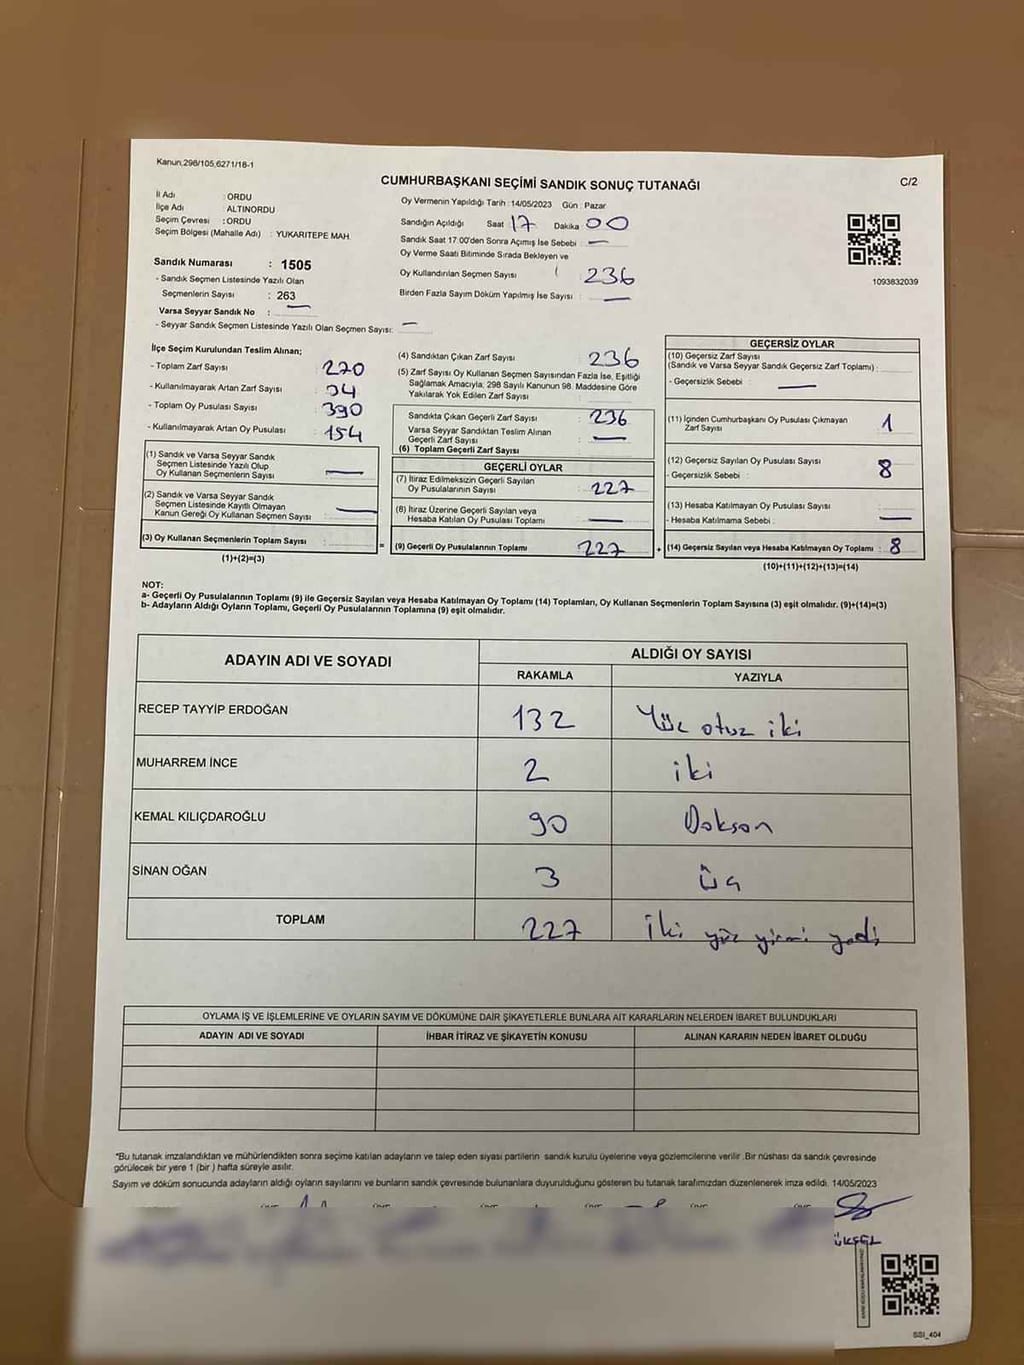 Kanun,298/105,6271/18-1
CUMHURBAŞKANI SEÇİMİ SANDIK SONUÇ TUTANAĞI
C/2
İl Adı : ORDU
İlçe Adı : ALTINORDU
Seçim Çevresi : ORDU
Seçim Bölgesi (Mahalle Adı) : YUKARITEPE MAH.
Sandık Numarası : 1505
- Sandık Seçmen Listesinde Yazılı Olan
Seçmenlerin Sayısı : 263
Varsa Seyyar Sandık No : —
- Seyyar Sandık Seçmen Listesinde Yazılı Olan Seçmen Sayısı: —
Oy Vermenin Yapıldığı Tarih : 14/05/2023 Gün : Pazar
Sandığın Açıldığı Saat 17 Dakika 00
Sandık Saat 17:00'den Sonra Açımış İse Sebebi : —
Oy Verme Saati Bitiminde Sırada Bekleyen ve
Oy Kullandırılan Seçmen Sayısı 236
Birden Fazla Sayım Döküm Yapılmış İse Sayısı : —
1093832039
İlçe Seçim Kurulundan Teslim Alınan;
- Toplam Zarf Sayısı : 270
- Kullanılmayarak Artan Zarf Sayısı : 34
- Toplam Oy Pusulası Sayısı : 390
- Kullanılmayarak Artan Oy Pusulası : 154
(1) Sandık ve Varsa Seyyar Sandık
Seçmen Listesinde Yazılı Olup
Oy Kullanan Seçmenlerin Sayısı : —
(2) Sandık ve Varsa Seyyar Sandık
Seçmen Listesinde Kayıtlı Olmayan
Kanun Gereği Oy Kullanan Seçmen Sayısı : —
(3) Oy Kullanan Seçmenlerin Toplam Sayısı :
(1)+(2)=(3)
(4) Sandıktan Çıkan Zarf Sayısı : 236
(5) Zarf Sayısı Oy Kullanan Seçmen Sayısından Fazla İse, Eşitliği
Sağlamak Amacıyla, 298 Sayılı Kanunun 98. Maddesine Göre
Yakılarak Yok Edilen Zarf Sayısı :
Sandıkta Çıkan Geçerli Zarf Sayısı : 236
Varsa Seyyar Sandıktan Teslim Alınan
Geçerli Zarf Sayısı : —
(6) Toplam Geçerli Zarf Sayısı :
GEÇERLİ OYLAR
(7) İtiraz Edilmeksizin Geçerli Sayılan
Oy Pusulalarının Sayısı : 227
(8) İtiraz Üzerine Geçerli Sayılan veya
Hesaba Katılan Oy Pusulası Toplamı : —
= (9) Geçerli Oy Pusulalarının Toplamı : 227
GEÇERSİZ OYLAR
(10) Geçersiz Zarf Sayısı
(Sandık ve Varsa Seyyar Sandık Geçersiz Zarf Toplamı) :
- Geçersizlik Sebebi : —
(11) İçinden Cumhurbaşkanı Oy Pusulası Çıkmayan
Zarf Sayısı : 1
(12) Geçersiz Sayılan Oy Pusulası Sayısı : 8
- Geçersizlik Sebebi :
(13) Hesaba Katılmayan Oy Pusulası Sayısı : —
- Hesaba Katılmama Sebebi :
+ (14) Geçersiz Sayılan veya Hesaba Katılmayan Oy Toplamı : 8
(10)+(11)+(12)+(13)=(14)
NOT:
a- Geçerli Oy Pusulalarının Toplamı (9) ile Geçersiz Sayılan veya Hesaba Katılmayan Oy Toplamı (14) Toplamları, Oy Kullanan Seçmenlerin Toplam Sayısına (3) eşit olmalıdır. (9)+(14)=(3)
b- Adayların Aldığı Oyların Toplamı, Geçerli Oy Pusulalarının Toplamına (9) eşit olmalıdır.
ADAYIN ADI VE SOYADI ALDIĞI OY SAYISI
RAKAMLA YAZIYLA
RECEP TAYYİP ERDOĞAN 132 Yüz otuz iki
MUHARREM İNCE 2 iki
KEMAL KILIÇDAROĞLU 90 Doksan
SİNAN OĞAN 3 üç
TOPLAM 227 iki yüz yirmi yedi
OYLAMA İŞ VE İŞLEMLERİNE VE OYLARIN SAYIM VE DÖKÜMÜNE DAİR ŞİKAYETLERLE BUNLARA AİT KARARLARIN NELERDEN İBARET BULUNDUKLARI
ADAYIN ADI VE SOYADI İHBAR İTİRAZ VE ŞİKAYETİN KONUSU ALINAN KARARIN NEDEN İBARET OLDUĞU
*Bu tutanak imzalandıktan ve mühürlendikten sonra seçime katılan adayların ve talep eden siyasi partilerin sandık kurulu üyelerine veya gözlemcilerine verilir .Bir nüshası da sandık çevresinde
görülecek bir yere 1 (bir ) hafta süreyle asılır.
Sayım ve döküm sonucunda adayların aldığı oyların sayılarını ve bunların sandık çevresinde bulunanlara duyurulduğunu gösteren bu tutanak tarafımızdan düzenlenerek imza edildi. 14/05/2023
ÜKSEL
SSI_404